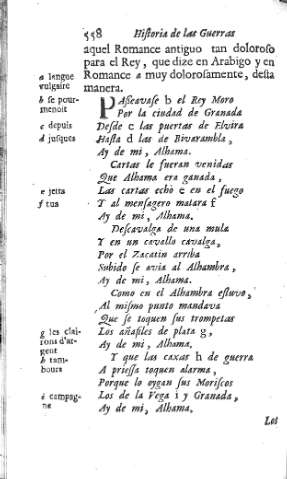 558 Historia de las Guerras
aquel Romance antiguo tan doloroso
para el Rey, que dize en Arabigo y en
Romance a muy dolorosamente, desta
manera.
a langue
vulgaire
PAseavase b el Rey Moro
b se pour-
menoit
Por la ciudad de Granada
c depuis
Desde c las puertas de Elvira
d jusques
Hasta d las de Bivarambla,
Ay de mi, Alhama.
Cartas le fueran venidas
Que Alhama era ganada,
e jetta
Las cartas echò e en el fuego
f tua
Y al mensagero matara f
Ay de mi, Alhama.
Descavalga de una mula
Y en un cavallo cavalga,
Por el Zacatin arriba
Subido se avia al Alhambra,
Ay de mi, Alhama.
Como en el Alhambra estuvo,
Al mismo punto mandava
Que se toquen sus trompetas
g les clai-
rons d'ar-
gent
Los añafiles de plata g,
Ay de mi, Alhama.
h tam-
bours
Y que las caxas h de guerra
A priessa toquen alarma,
Porque lo oygan sus Moriscos
i campag-
ne
Los de la Vega i y Granada,
Ay de mi, Alhama.
Los